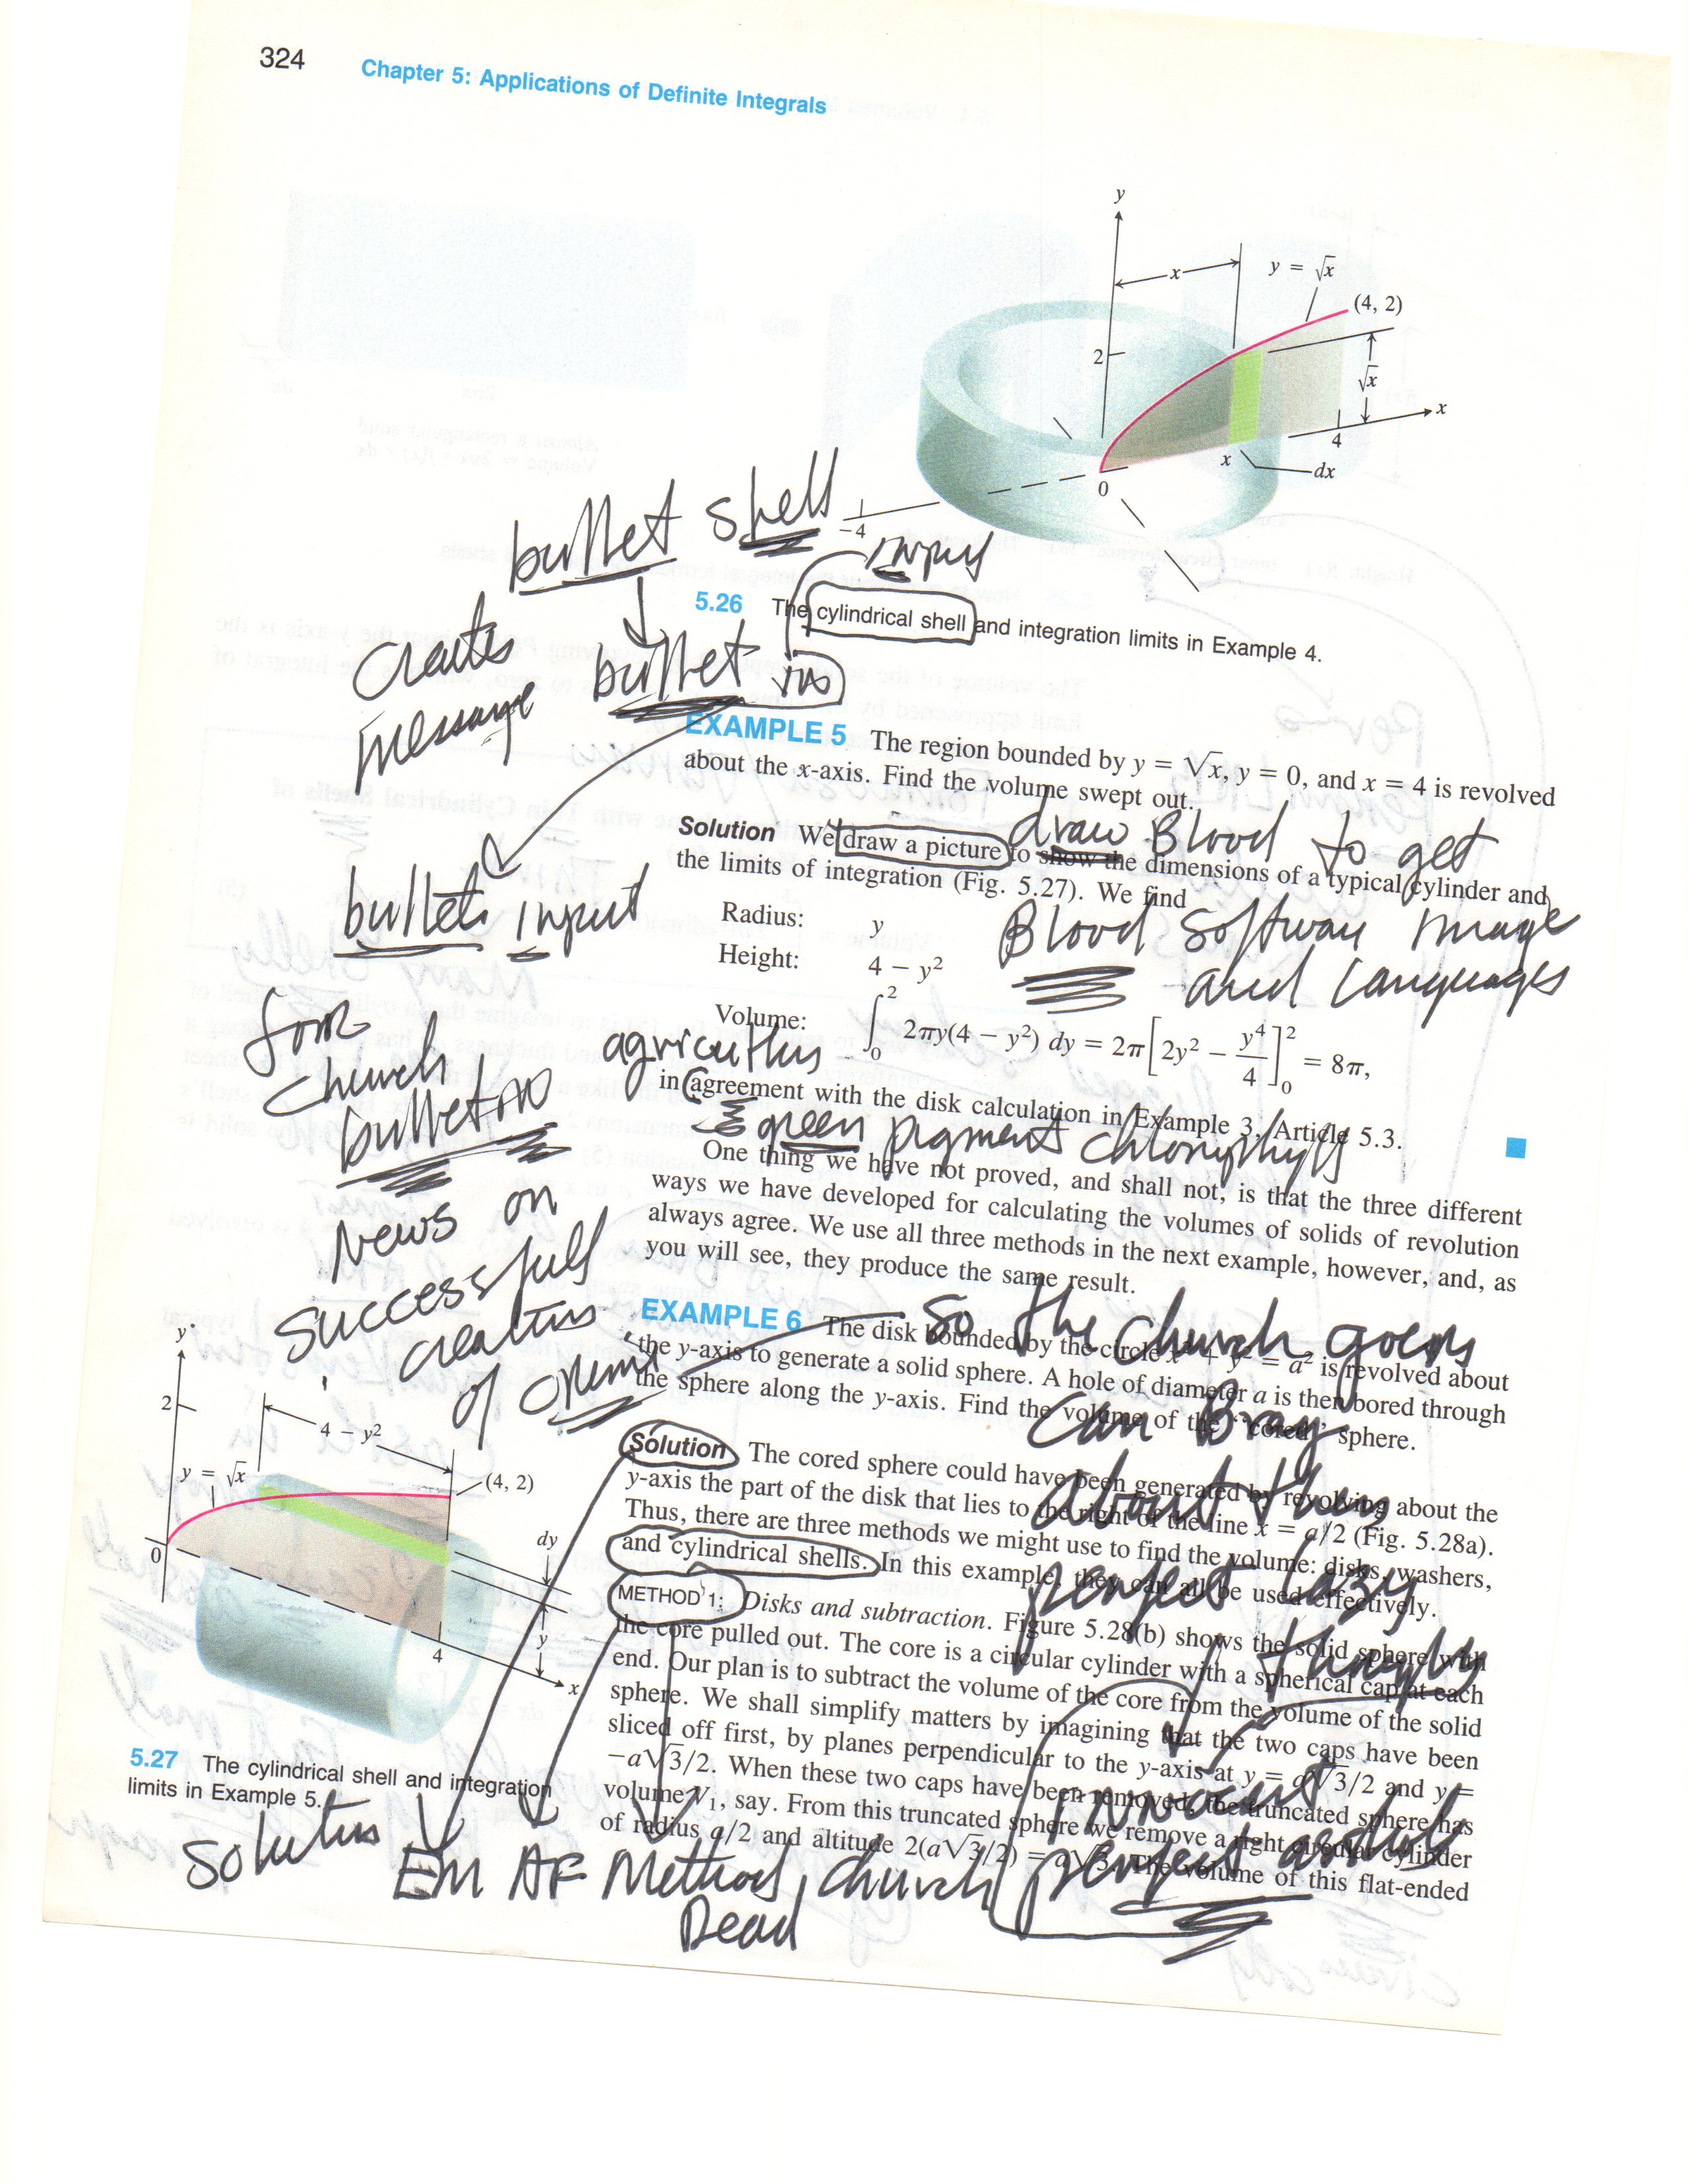 324
Chapter 5: Applications of Definite Integrals
y
x
y = √x
(4, 2)
2
√x
x
4
x
dx
0
−4
bullet shell
input
5.26 The cylindrical shell and integration limits in Example 4.
bullet in
message
EXAMPLE 5 The region bounded by y = √x, y = 0, and x = 4 is revolved
about the x-axis. Find the volume swept out.
draw Blood to get
Solution We draw a picture to show the dimensions of a typical cylinder and
the limits of integration (Fig. 5.27). We find
bullets input
Radius: y
Blood Software Image
and Languages
Height: 4 − y²
Volume: ∫₀² 2πy(4 − y²) dy = 2π[2y² − y⁴/4]₀² = 8π,
church
bulletin
in agreement with the disk calculation in Example 3, Article 5.3.
green pigment
One thing we have not proved, and shall not, is that the three different
ways we have developed for calculating the volumes of solids of revolution
always agree. We use all three methods in the next example, however, and, as
you will see, they produce the same result.
News on
successfull
of
EXAMPLE 6 The disk bounded by the circle x² + y² = a² is revolved about
the y-axis to generate a solid sphere. A hole of diameter a is then bored through
the sphere along the y-axis. Find the volume of the “cored” sphere.
So the Church goers
Can Brag
about their
perfect lazy
Solution The cored sphere could have been generated by revolving about the
y-axis the part of the disk that lies to the right of the line x = a/2 (Fig. 5.28a).
Thus, there are three methods we might use to find the volume: disks, washers,
and cylindrical shells. In this example, they can all be used effectively.
METHOD 1: Disks and subtraction. Figure 5.28(b) shows the solid sphere with
the core pulled out. The core is a circular cylinder with a spherical cap at each
end. Our plan is to subtract the volume of the core from the volume of the solid
sphere. We shall simplify matters by imagining that the two caps have been
sliced off first, by planes perpendicular to the y-axis at y = a√3/2 and y =
−a√3/2. When these two caps have been removed, the truncated sphere has
volume V₁, say. From this truncated sphere we remove a right circular cylinder
of radius a/2 and altitude 2(a√3/2) = a√3. The volume of this flat-ended
innocent
perfect
y
2
4 − y²
y = √x
(4, 2)
0
dy
y
4
x
5.27 The cylindrical shell and integration
limits in Example 5.
Method, church
Dead